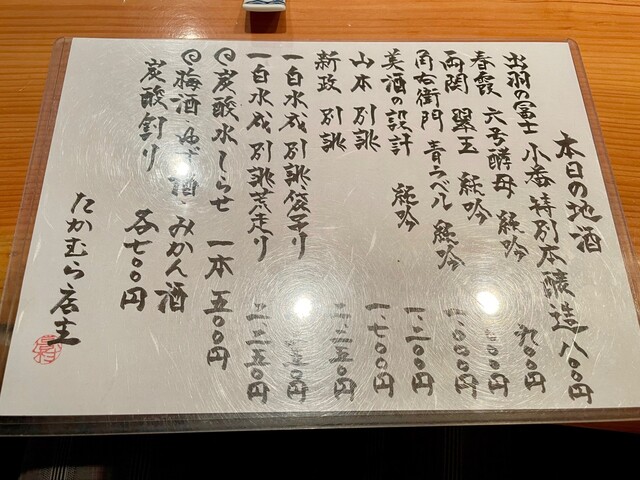 本日の地酒
出羽の冨士 小番 特別本醸造 八〇〇円
春霞 六号酵母 純吟 九〇〇円
両関 翠玉 純吟 〇〇円
角右衛門 青ラベル 純吟 一、〇〇〇円
美酒の設計 純吟 一、二〇〇円
山本 別誂 一、七〇〇円
新政 別誂 二、二五〇円
一白水成 別誂 袋吊り 五〇円
一白水成 別誂 荒走り 二二五〇円
◎炭酸水しらせ 一本 五〇〇円
◎梅酒、ゆず酒、みかん酒
炭酸割り 各七〇〇円
たかむら店主